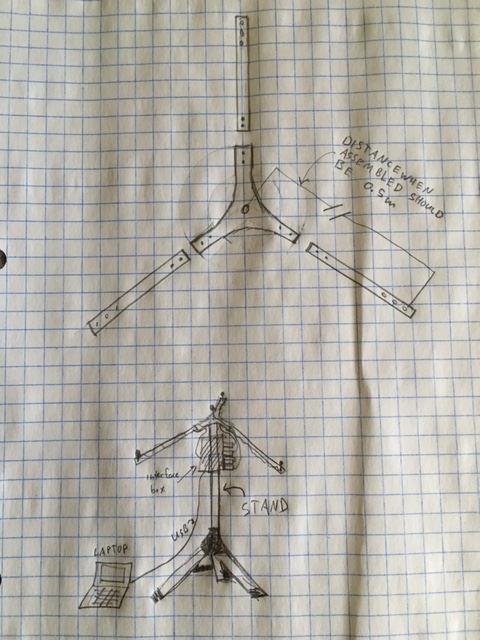 DISTANCE WHEN
ASSEMBLED SHOULD
BE 0.5m
interface
box
STAND
USB3
LAPTOP